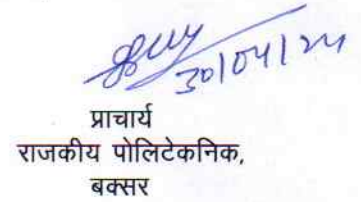 30/04/24
प्राचार्य
राजकीय पोलिटेकनिक,
बक्सर